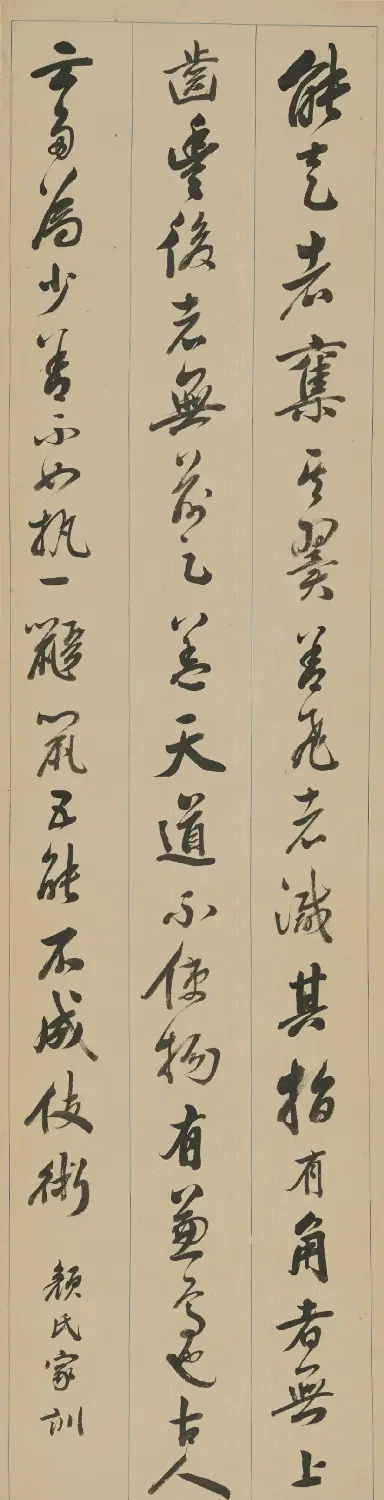 能走者奪其翼善飛者減其指有角者無上
齒豐後者無前足蓋天道不使物有兼焉也古人
云多為少善不如執一鼯鼠五能不成伎術
顏氏家訓